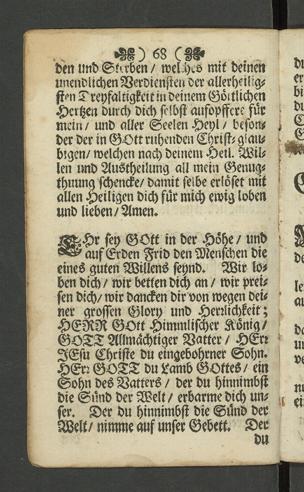 ) 68 (
den und Sterben / welches mit deinen
unendlichen Verdiensten der allerheilig-
sten Dreyfaltigkeit in deinem Göttlichen
Hertzen durch dich selbst aufopffere für
mein / und aller Seelen Heyl / beson-
der der in GOtt ruhenden Christ-glau-
bigen / welchen nach deinem Heil. Wil-
len und Austheilung all mein Genug-
thuung schencke / damit selbe erlöset mit
allen Heiligen dich für mich ewig loben
und lieben / Amen.
EHr sey GOtt in der Höhe / und
auf Erden Frid den Menschen die
eines guten Willens seynd. Wir lo-
ben dich / wir betten dich an / wir prei-
sen dich / wir dancken dir von wegen dei-
ner grossen Glory und Herlichkeit;
HERR GOtt Himmlischer König /
GOTT Allmächtiger Vatter / HErr
JESu Christe du eingebohrner Sohn.
HErr GOTT du Lamb GOttes / ein
Sohn des Vatters / der du hinnimbst
die Sünd der Welt / erbarme dich un-
ser. Der du hinnimbst die Sünd der
Welt / nimme auf unser Gebett. Der
du